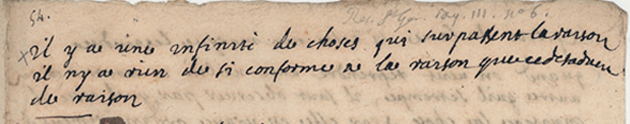 54.
Il y a une infinité de choses qui surpassent la raison
il n'y a rien de si conforme a la raison que ce desaveu
de raison